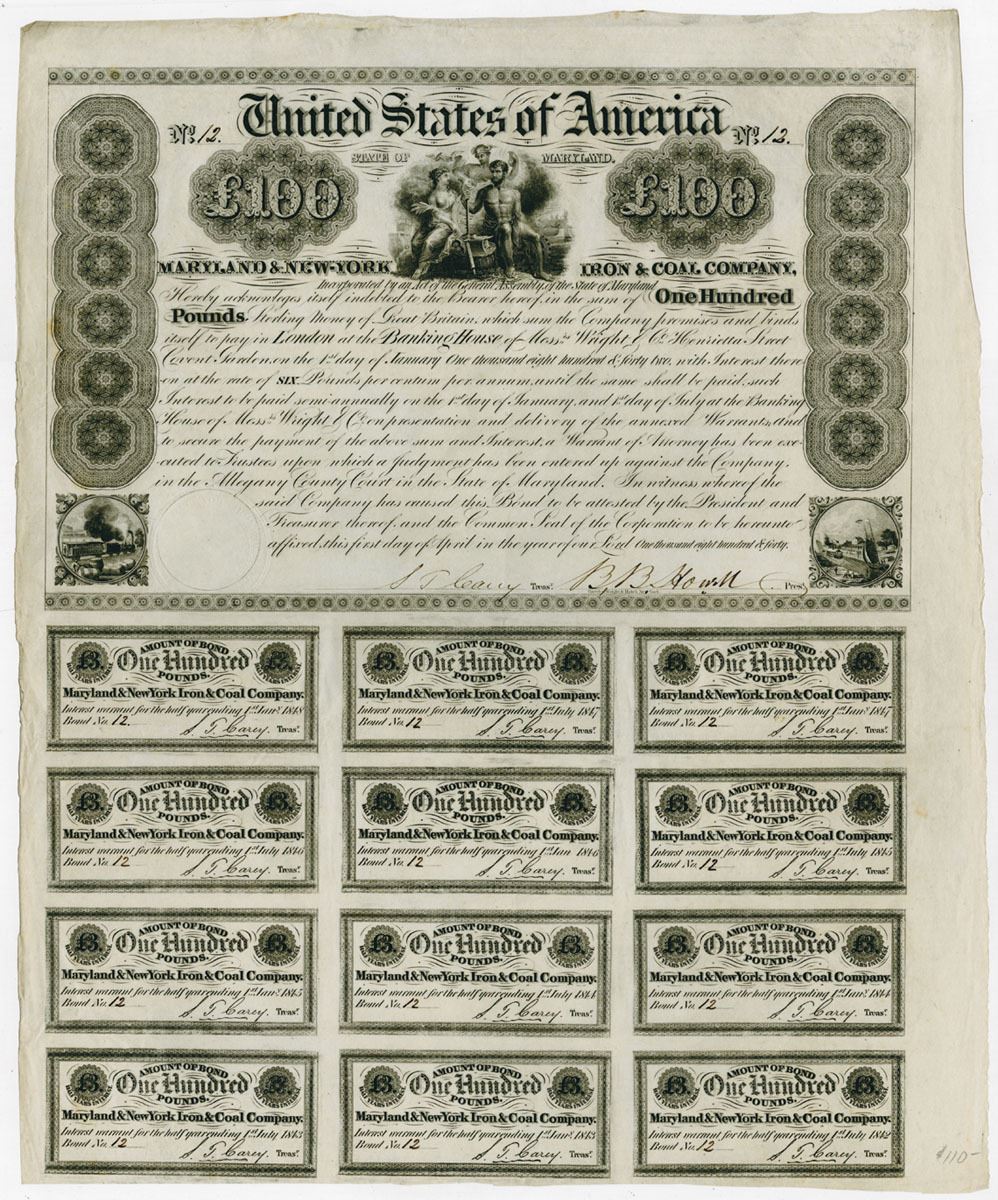 United States of America
No. 12.
No. 12.
STATE OF MARYLAND.
£100
£100
MARYLAND & NEW-YORK IRON & COAL COMPANY,
Incorporated by an Act of the General Assembly of the State of Maryland
Hereby acknowleges itself indebted to the Bearer hereof, in the sum of One Hundred
Pounds. Sterling Money of Great Britain, which sum the Company promises and binds
itself to pay in London at the Banking House of Messrs. Wright & Co. Henrietta Street
Covent Garden, on the 1st day of January One thousand eight hundred & forty two, with Interest there-
on at the rate of SIX Pounds per centum per annum, until the same shall be paid, such
Interest to be paid semi-annually on the 1st day of January, and 1st day of July at the Banking
House of Messrs. Wright & Co. on presentation and delivery of the annexed Warrants, and
to secure the payment of the above sum and Interest, a Warrant of Attorney has been exe-
cuted to Trustees upon which a Judgment has been entered up against the Company,
in the Allegany County Court in the State of Maryland. In witness whereof the
said Company has caused this Bond to be attested by the President and
Treasurer thereof, and the Common Seal of the Corporation to be hereunto
affixed, this first day of April in the year of our Lord One thousand eight hundred & forty.
S T Carey Treasr. B B Howell Prest.
£3. AMOUNT OF BOND £3.
One Hundred
POUNDS.
Maryland & New York Iron & Coal Company.
Interest warrant for the half year ending 1st Jany. 1848
Bond No. 12 S. T. Carey. Treasr.
£3. AMOUNT OF BOND £3.
One Hundred
POUNDS.
Maryland & New York Iron & Coal Company.
Interest warrant for the half year ending 1st July 1847
Bond No. 12 S. T. Carey. Treasr.
£3. AMOUNT OF BOND £3.
One Hundred
POUNDS.
Maryland & New York Iron & Coal Company.
Interest warrant for the half year ending 1st Jany. 1847
Bond No. 12 S. T. Carey. Treasr.
£3. AMOUNT OF BOND £3.
One Hundred
POUNDS.
Maryland & New York Iron & Coal Company.
Interest warrant for the half year ending 1st July 1846
Bond No. 12 S. T. Carey. Treasr.
£3. AMOUNT OF BOND £3.
One Hundred
POUNDS.
Maryland & New York Iron & Coal Company.
Interest warrant for the half year ending 1st Jan 1846
Bond No. 12 S. T. Carey. Treasr.
£3. AMOUNT OF BOND £3.
One Hundred
POUNDS.
Maryland & New York Iron & Coal Company.
Interest warrant for the half year ending 1st July 1845
Bond No. 12 S. T. Carey. Treasr.
£3. AMOUNT OF BOND £3.
One Hundred
POUNDS.
Maryland & New York Iron & Coal Company.
Interest warrant for the half year ending 1st Jany. 1845
Bond No. 12 S. T. Carey. Treasr.
£3. AMOUNT OF BOND £3.
One Hundred
POUNDS.
Maryland & New York Iron & Coal Company.
Interest warrant for the half year ending 1st July 1844
Bond No. 12 S. T. Carey. Treasr.
£3. AMOUNT OF BOND £3.
One Hundred
POUNDS.
Maryland & New York Iron & Coal Company.
Interest warrant for the half year ending 1st Jany. 1844
Bond No. 12 S. T. Carey. Treasr.
£3. AMOUNT OF BOND £3.
One Hundred
POUNDS.
Maryland & New York Iron & Coal Company.
Interest warrant for the half year ending 1st July 1843
Bond No. 12 S. T. Carey. Treasr.
£3. AMOUNT OF BOND £3.
One Hundred
POUNDS.
Maryland & New York Iron & Coal Company.
Interest warrant for the half year ending 1st Jany. 1843
Bond No. 12 S. T. Carey. Treasr.
£3. AMOUNT OF BOND £3.
One Hundred
POUNDS.
Maryland & New York Iron & Coal Company.
Interest warrant for the half year ending 1st July 1842
Bond No. 12 S. T. Carey. Treasr.
$110-